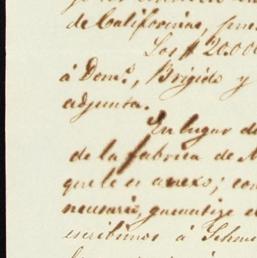 de California, 
Los $20.00
á Dom.º, Brigido y
adjunta.
En lugar d
de la fabrica de
que le es anexo; con
necesario, garantize e
escribimos á